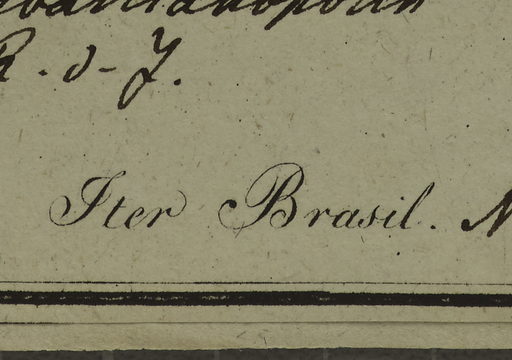 R. d - J.
Iter Brasil. N